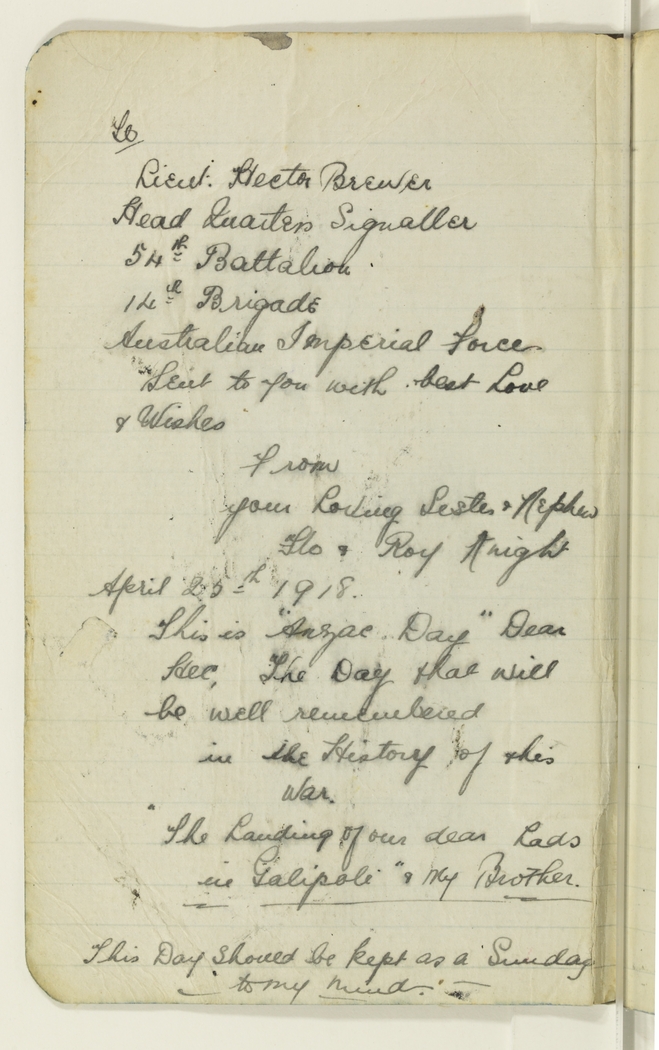 To
Lieut. Hector Brewer
Head Quarters Signaller
54th Battalion.
14th Brigade
Australian Imperial Force
Sent to you with best Love
& Wishes
From
your Loving Sister & Nephew
Flo & Roy Knight
April 25th 1918.
This is "Anzac Day" Dear
Hec, The Day that will
be well remembered
in the History of this
War.
"The Landing of our dear Lads
in Galipoli" & My Brother.
This Day should be kept as a Sunday
to my mind.